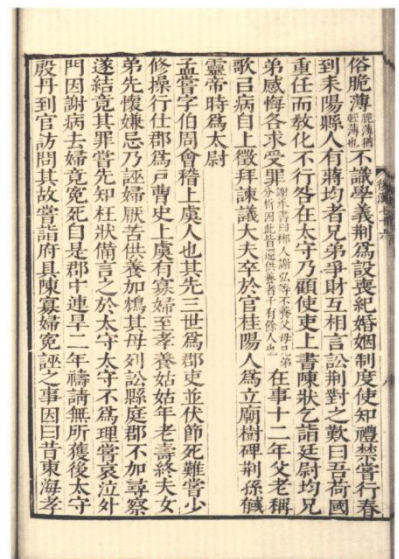 俗脆薄脆薄猶輕薄也不識學義荆為設喪紀婚姻制度使知禮禁嘗行春
到耒陽縣人有蔣均者兄弟爭財互相言訟荆對之歎曰吾荷國
重任而教化不行咎在太守乃顧使吏上書陳狀乞詣廷尉均兄
弟感悔各求受罪謝承書曰郴人謝弘等不養父母兄弟分析因此皆還供養者千有餘人也在事十二年父老稱
歌㠯病自上徵拜諫議大夫卒於官桂陽人為立廟樹碑荆孫𩇕
靈帝時為太尉
孟嘗字伯周會稽上虞人也其先三世為郡吏並伏節死難嘗少
修操行仕郡為戸曹史上虞有寡婦至孝養姑姑年老壽終夫女
弟先懷嫌忌乃誣婦厭苦供養加鴆其母列訟縣庭郡不加尋察
遂結竟其罪嘗先知枉狀備言之於太守太守不為理嘗哀泣外
門因謝病去婦竟冤死自是郡中連旱二年禱請無所獲後太守
殷丹到官訪問其故嘗詣府具陳寡婦冤誣之事因曰昔東海孝